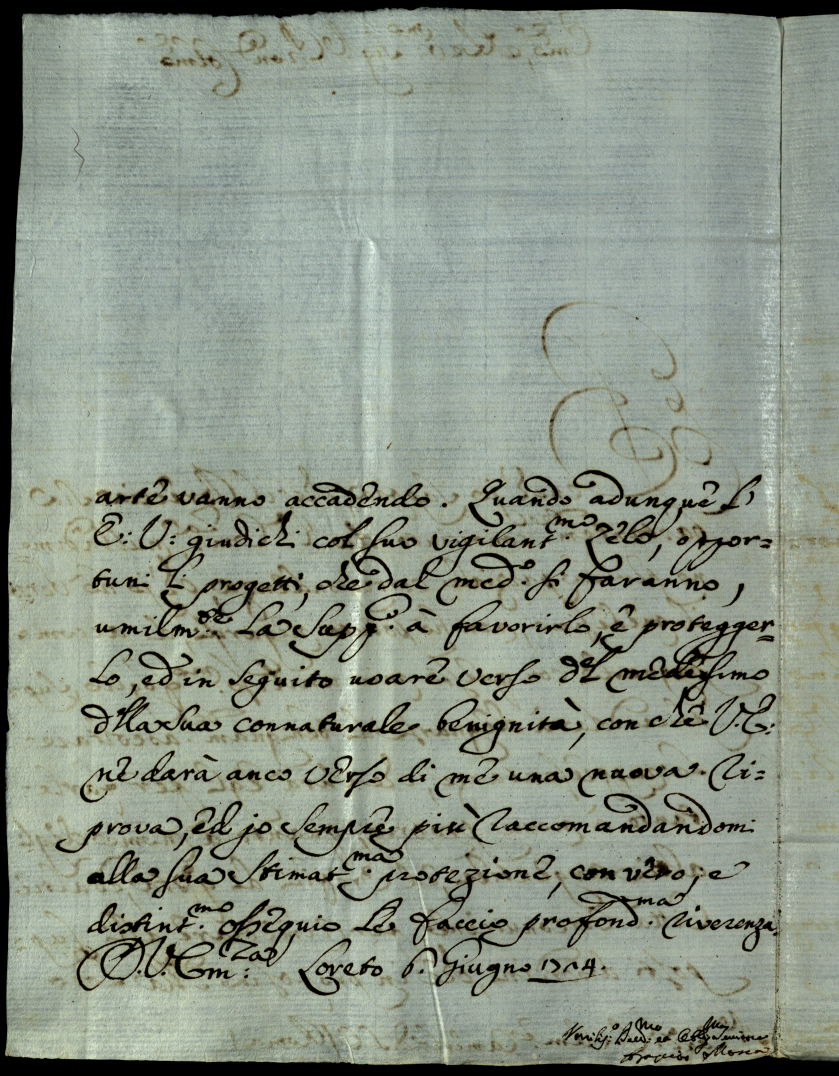 arte vanno accadendo. Quando adunque l'
E: V: giudichi col suo vigilant.mo Zelo, oppor=
tuni li progetti, che dal med.o si faranno,
umilm.te La Supp.o à favorirlo, è protegger=
lo, ed in seguito usare verso del medesimo
della Sua connaturale benignità, con che V. E:
ne darà anco verso di me una nuova ri=
prova, ed io sempre più raccomandandomi
alla sua Stimat.ma protezione, con vero, e
distint.mo ossequio Le faccio profond.ma riverenza
D. V. Em.za Loreto 6. Giugno 1714.
Umiliss.o Dev.mo et Obblig.mo Servitore